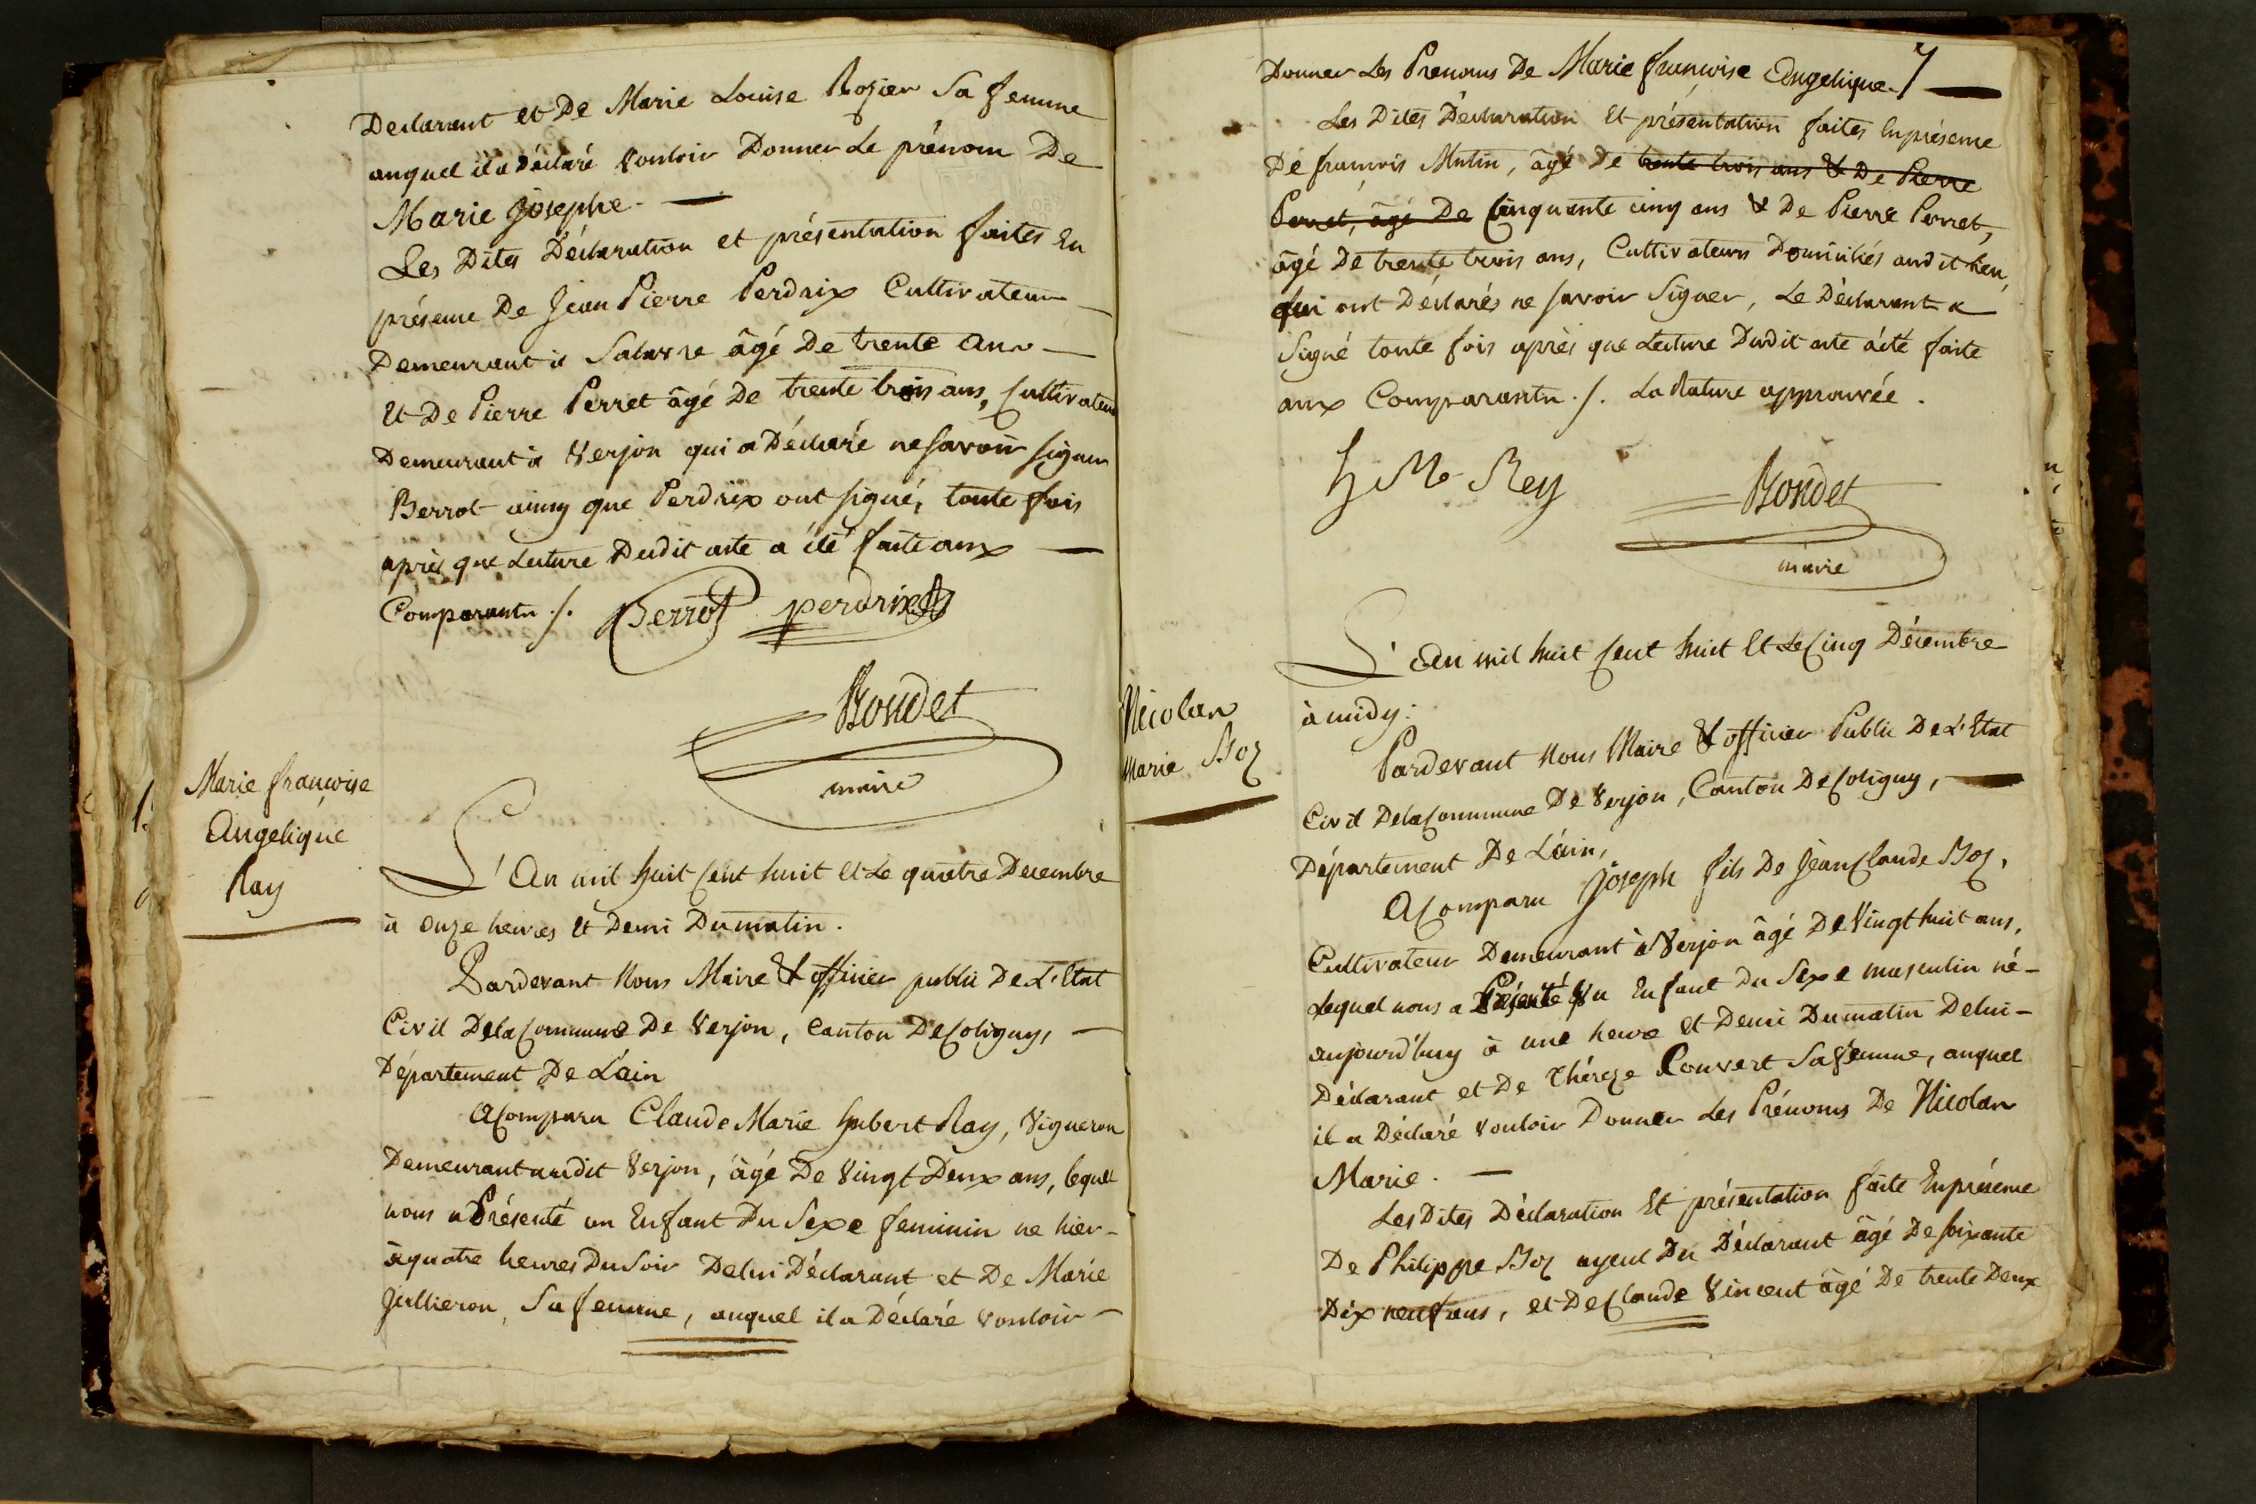 Declarant et De Marie Louise Rozier Sa femme
auquel il a Déclaré Vouloir Donner Le prénom De
Marie Josephe.
Les Dites Déclaration et présentation faites En
présence De Jean Pierre Perdrix Cultivateur
Demeurant à Salavre âgé De trente ans
Et De Pierre Perret âgé De trente trois ans, Cultivateur
Demeurant à Verjon qui a Déclaré ne savoir signer
Berrot ainsy que Perdrix ont signé, toute fois
après que Lecture Dudit acte a été faite aux
Comparants ./. Berrot perdrix
Bondet
maire
Marie françoise
Angelique
Ray
L'An mil huit Cent huit Et Le quatre Decembre
à onze heures Et Demi Du matin.
Pardevant Nous Maire & officier public De L'Etat
Civil De la Commune De Verjon, Canton De Coligny,
Département De L'ain
A Comparu Claude Marie hubert Ray, Vigneron
Demeurant audit Verjon, âgé De Vingt Deux ans, lequel
nous a Présenté un Enfant Du Sexe feminin ne hier
à quatre heures Du Soir De lui Déclarant et De Marie
Jullieron, Sa femme, auquel il a Déclaré vouloir
7
Donner Les Prenoms De Marie françoise Angelique.
Les Dites Déclaration Et présentation faites En présence
De françois Mutin, âgé De trente trois ans & De Pierre
Perret, âgé De Cinquante cinq ans & De Pierre Perret,
âgé De trente trois ans, Cultivateurs Domiciliés audit lieu,
qui ont Déclarés ne savoir Signer, Le Déclarant a
Signé toute fois après que Lecture Dudit acte a été faite
aux Comparants ./. La Rature approuvée.
h Me Rey
Bondet
maire
Nicolas
Marie Boz
L'An mil huit Cent huit Et Le Cinq Décembre
à midy:
Pardevant Nous Maire & officier Public De L'Etat
Civil De la Commune De Verjon, Canton De Coligny,
Département De L'ain,
A Comparu Joseph fils De Jean Claude Boz,
Cultivateur Demeurant à Verjon âgé De Vingt huit ans,
Lequel nous a Présenté Un Enfant Du Sexe masculin né
aujourd'huy à une heure et Demi Du matin De lui
Déclarant et De Théreze Convert Sa femme, auquel
il a Déclaré vouloir Donner Les Prénoms De Nicolas
Marie.
Les Dites Déclaration Et présentation faite En présence
De Philippe Boz ayeul Du Déclarant âgé De soixante
Dix neuf ans, et De Claude Vincent âgé De trente Deux